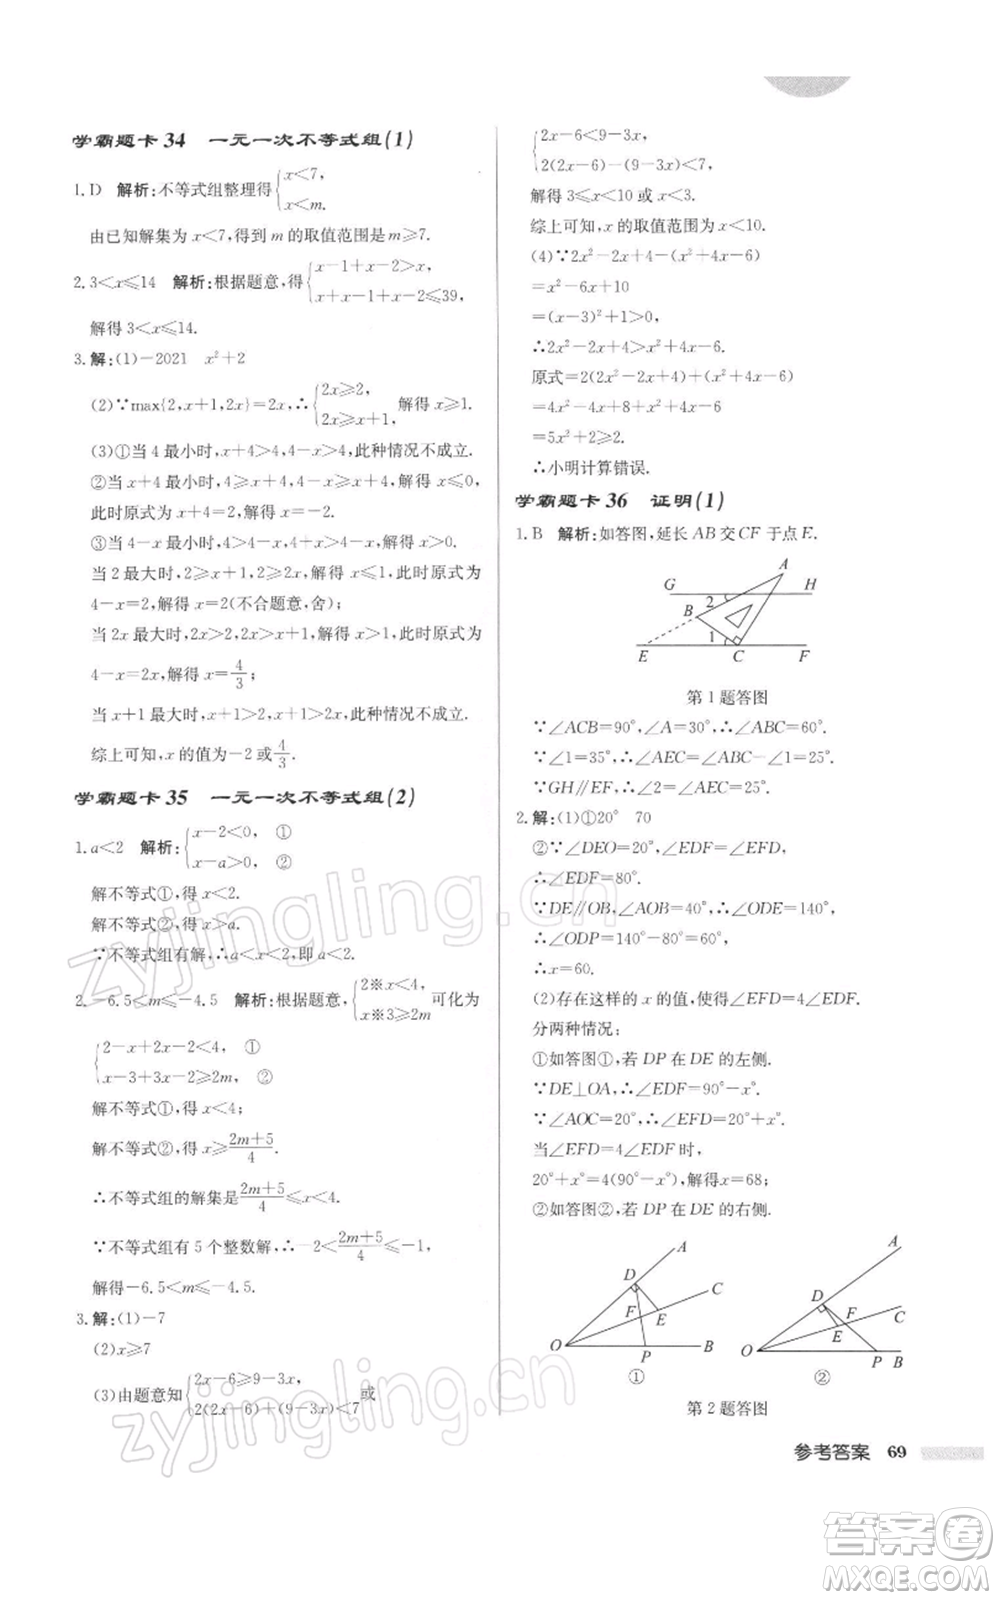 学霸题卡 34 一元一次不等式组(1)
1. D 解析:不等式组整理得{x<7, x<m.
由已知解集为 x<7,得到 m 的取值范围是 m≥7.
2. 3<x≤14 解析:根据题意,得{x-1+x+x-2>x, x+x-1+x-2≤39,
解得 3<x≤14.
3. 解:(1)-2021 x²+2
(2)∵max{2,x+1,2x}=2x,∴{2x≥2, 2x≥x+1, 解得 x≥1.
(3)①当 4 最小时,x+4>4,4-x>4,此种情况不成立.
②当 x+4 最小时,4>x+4,4-x>x+4,解得 x<0,
此时原式为 x+4=2,解得 x=-2.
③当 4-x 最小时,4>4-x,x+4>4-x,解得 x>0,
当 2 最大时,2≥x+1,2≥2x,解得 x≤1,此时原式为
4-x=2,解得 x=2(不合题意,舍);
当 2x 最大时,2x>2,2x>x+1,解得 x>1,此时原式为
4-x=2x,解得 x=4/3;
当 x+1 最大时,x+1>2,x+1>2x,此种情况不成立.
综上可知,x 的值为-2 或4/3.
学霸题卡 35 一元一次不等式组(2)
1. a<2 解析:{x-2<0, ① x-a>0, ②
解不等式①,得 x<2.
解不等式②,得 x>a.
∵不等式组有解,∴a<x<2,即 a<2.
2. -6.5<m≤-4.5 解析:根据题意,{2※x<4, x※3≥2m 可化为
{2-x+2x-2<4, ① x-3+3x-2≥2m, ②
解不等式①,得 x<4;
解不等式②,得 x≥(2m+5)/4.
∴不等式组的解集是(2m+5)/4≤x<4.
∵不等式组有 5 个整数解,∴-2<(2m+5)/4≤-1,
解得-6.5<m≤-4.5.
3. 解:(1)-7
(2)x≥7
(3)由题意知{2x-6≥9-3x, 2(2x-6)+(9-3x)<7 或
{2x-6<9-3x, 2(2x-6)-(9-3x)<7,
解得 3≤x<10 或 x<3.
综上可知,x 的取值范围为 x<10.
(4)∵2x²-2x+4-(x²+4x-6)
=x²-6x+10
=(x-3)²+1>0,
∴2x²-2x+4>x²+4x-6.
原式=2(2x²-2x+4)+(x²+4x-6)
=4x²-4x+8+x²+4x-6
=5x²+2≥2.
∴小明计算错误.
学霸题卡 36 证明(1)
1. B 解析:如答图,延长 AB 交 CF 于点 E.
A
G
H
2
B
1
E
C
F
第 1 题答图
∵∠ACB=90°,∠A=30°,∴∠ABC=60°.
∵∠1=35°,∴∠AEC=∠ABC-∠1=25°.
∵GH∥EF,∴∠2=∠AEC=25°.
2. 解:(1)①20° 70
②∵∠DEO=20°,∠EDF=∠EFD,
∴∠EDF=80°.
∵DE∥OB,∠AOB=40°,∴∠ODE=140°,
∴∠ODP=140°-80°=60°,
∴x=60.
(2)存在这样的 x 的值,使得∠EFD=4∠EDF.
分两种情况:
①如答图①,若 DP 在 DE 的左侧.
∵DE⊥OA,∴∠EDF=90°-x°.
∵∠AOC=20°,∴∠EFD=20°+x°.
当∠EFD=4∠EDF 时,
20°+x°=4(90°-x°),解得 x=68;
②如答图②,若 DP 在 DE 的右侧.
A
D
C
F
E
O
P
B
①
A
D
C
F
E
O
P
B
②
第 2 题答图
参考答案 69
zyjingling.cn
zyjingling.cn
答案卷
MXQE.COM